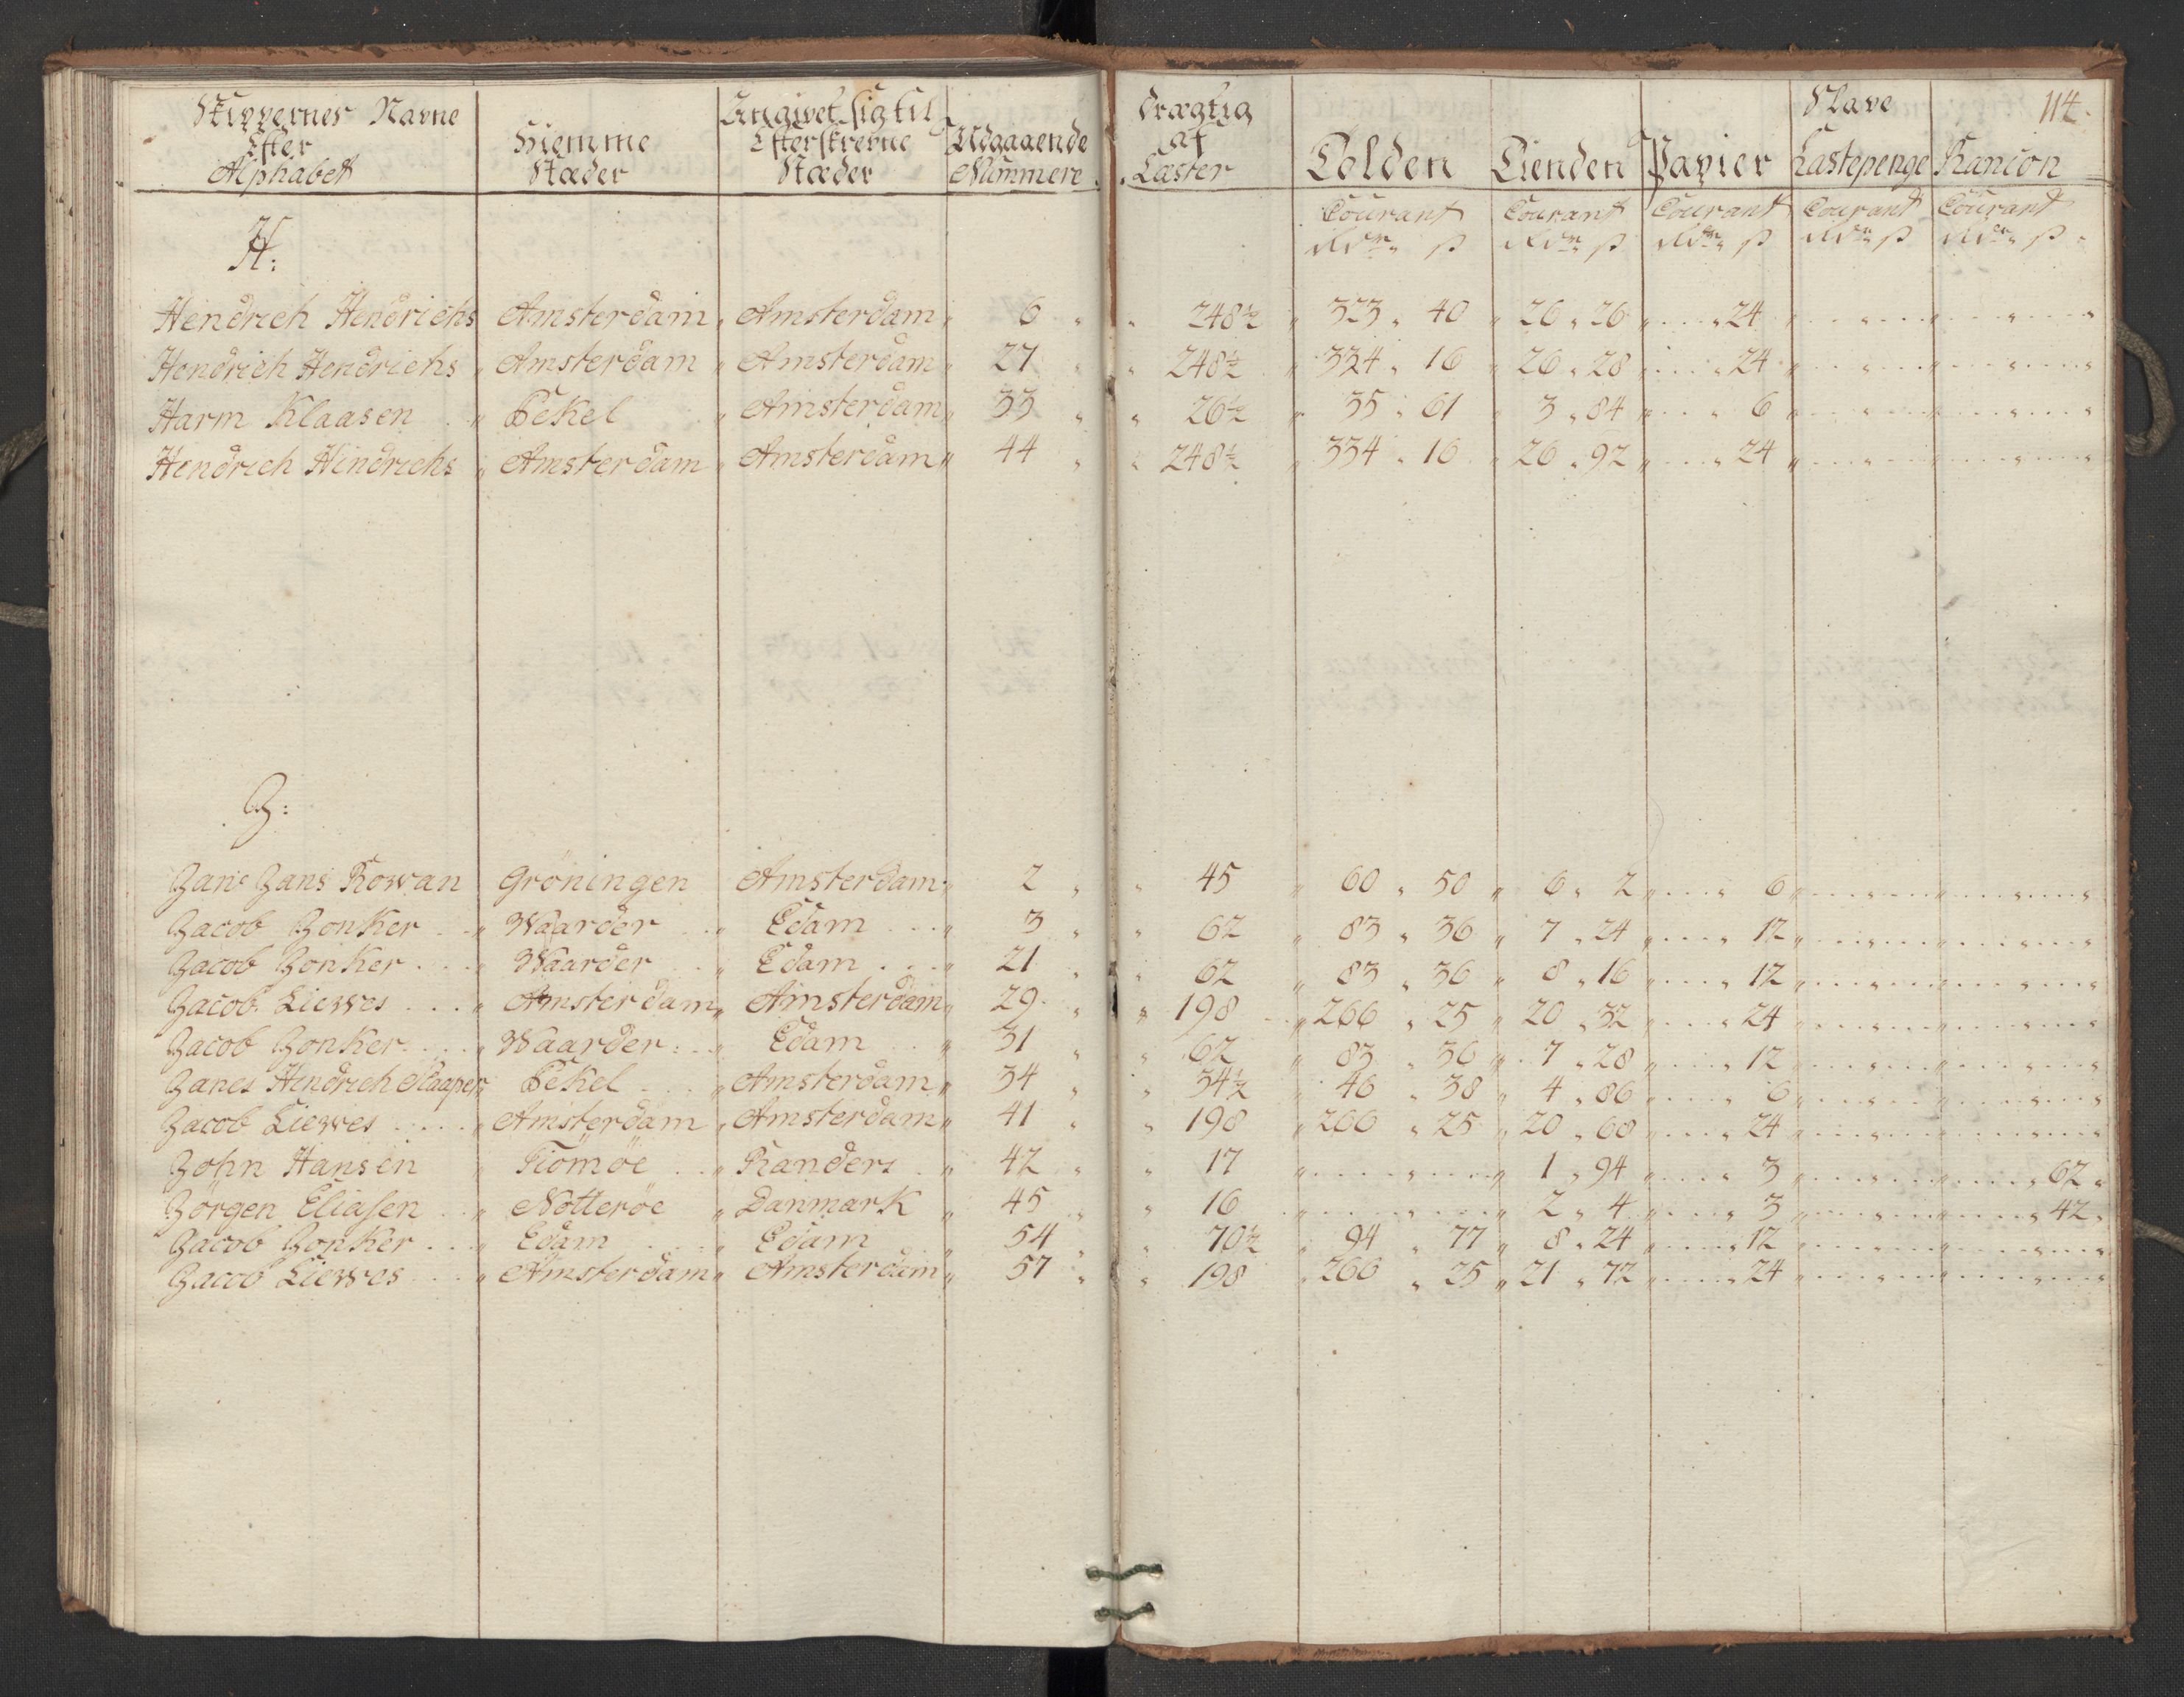 114.
Skippernes Navne Efter Alphabet | Hiemme Stæder | Angivet sig til Efterskrevne Stæder | Udgaaende Nummere | Drægtig af Læster | Tolden | Tienden | Papier | Slave Lastepenge | Rancion
Courant | Courant | Courant | Courant | Courant
Rdr ß | Rdr ß | Rdr ß | Rdr ß | Rdr ß
H:
Hendrich Hendrichs | Amsterdam | Amsterdam | 6 | 248½ | 323 " 40 | 26 " 26 | 24
Hendrich Hendrichs | Amsterdam | Amsterdam | 27 | 248½ | 334 " 16 | 26 " 28 | 24
Harm Klaasen | Pekel | Amsterdam | 33 | 26½ | 35 " 61 | 3 " 84 | 6
Hendrich Hindrichs | Amsterdam | Amsterdam | 44 | 248½ | 334 " 16 | 26 " 92 | 24
J:
Jans Jans Kowan | Gröningen | Amsterdam | 2 | 45 | 60 " 50 | 6 " 2 | 6
Jacob Jonker | Waarder | Edam | 3 | 62 | 83 " 36 | 7 " 24 | 12
Jacob Jonker | Waarder | Edam | 21 | 62 | 83 " 36 | 8 " 16 | 12
Jacob Liewes | Amsterdam | Amsterdam | 29 | 198 | 266 " 25 | 20 " 32 | 24
Jacob Jonker | Waarder | Edam | 31 | 62 | 83 " 36 | 7 " 28 | 12
Janes Hendrich Slaaper | Pekel | Amsterdam | 34 | 34½ | 46 " 38 | 4 " 86 | 6
Jacob Liewes | Amsterdam | Amsterdam | 41 | 198 | 266 " 25 | 20 " 68 | 24
John Hansen | Tiömöe | Randers | 42 | 17 | 1 " 94 | 3 | 62
Jörgen Eliasen | Nötteröe | Danmark | 45 | 16 | 2 " 4 | 3 | 42
Jacob Jonker | Edam | Edam | 54 | 70½ | 94 " 77 | 8 " 24 | 12
Jacob Liewes | Amsterdam | Amsterdam | 57 | 198 | 266 " 25 | 21 " 72 | 24